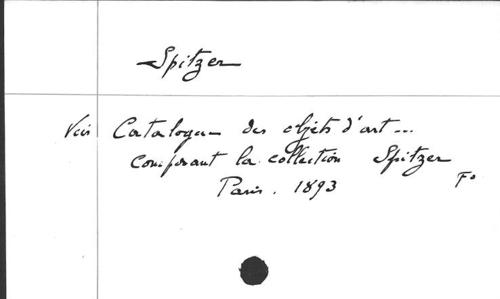 Spitzer
Voir Catalogue des objets d'art...
composant la collection Spitzer
Paris. 1893 Fº